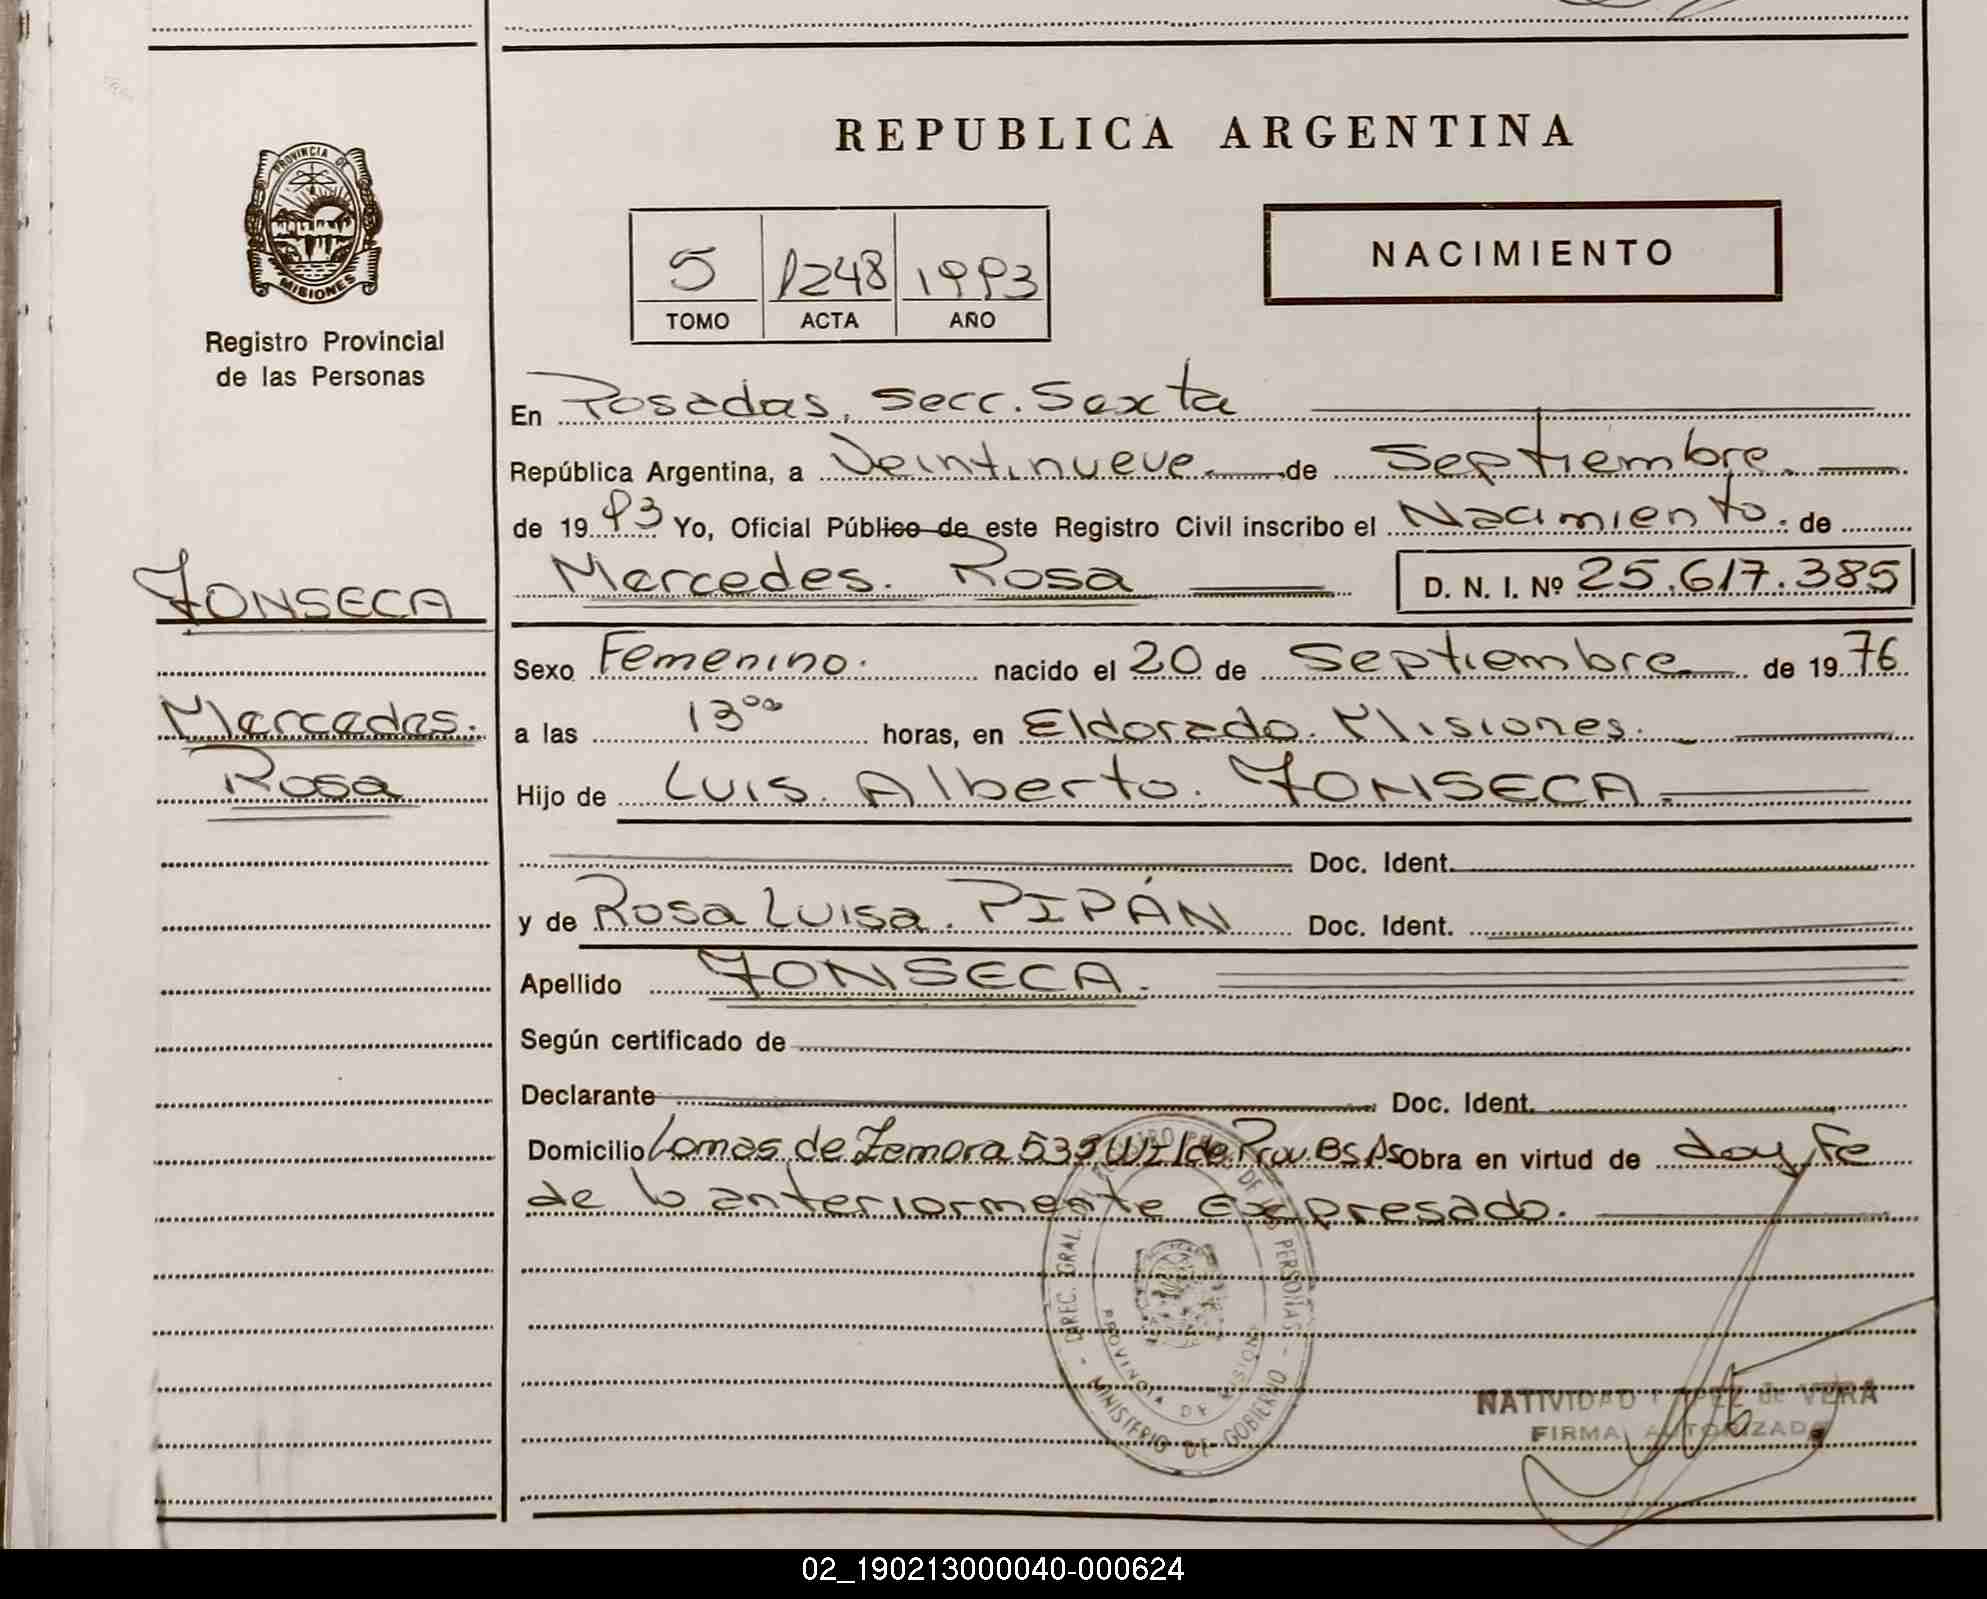 REPUBLICA ARGENTINA
PROVINCIA DE
MISIONES
Registro Provincial
de las Personas
NACIMIENTO
5 1248 1993
TOMO ACTA AÑO
En Posadas, Secc. Sexta
República Argentina, a Veintinueve de Septiembre
de 1993 Yo, Oficial Público de este Registro Civil inscribo el Nacimiento. de
Mercedes. Rosa D. N. I. Nº 25.617.385
FONSECA
Mercedes.
Rosa
Sexo Femenino. nacido el 20 de Septiembre de 1976
a las 13ºº horas, en Eldorado. Misiones.
Hijo de Luis. Alberto. FONSECA.
Doc. Ident.
y de Rosa Luisa. PIPÁN Doc. Ident.
Apellido FONSECA.
Según certificado de
Declarante Doc. Ident.
Domicilio Lomas de Zamora 539 Wilde Prov. Bs As Obra en virtud de doy Fe
de lo anteriormente Expresado.
DIREC. GRAL. DEL REGISTRO PROV. DE LAS PERSONAS
PROVINCIA DE MISIONES
MINISTERIO DE GOBIERNO
NATIVIDAD LOPEZ de VERA
FIRMA AUTORIZADA
02_190213000040-000624